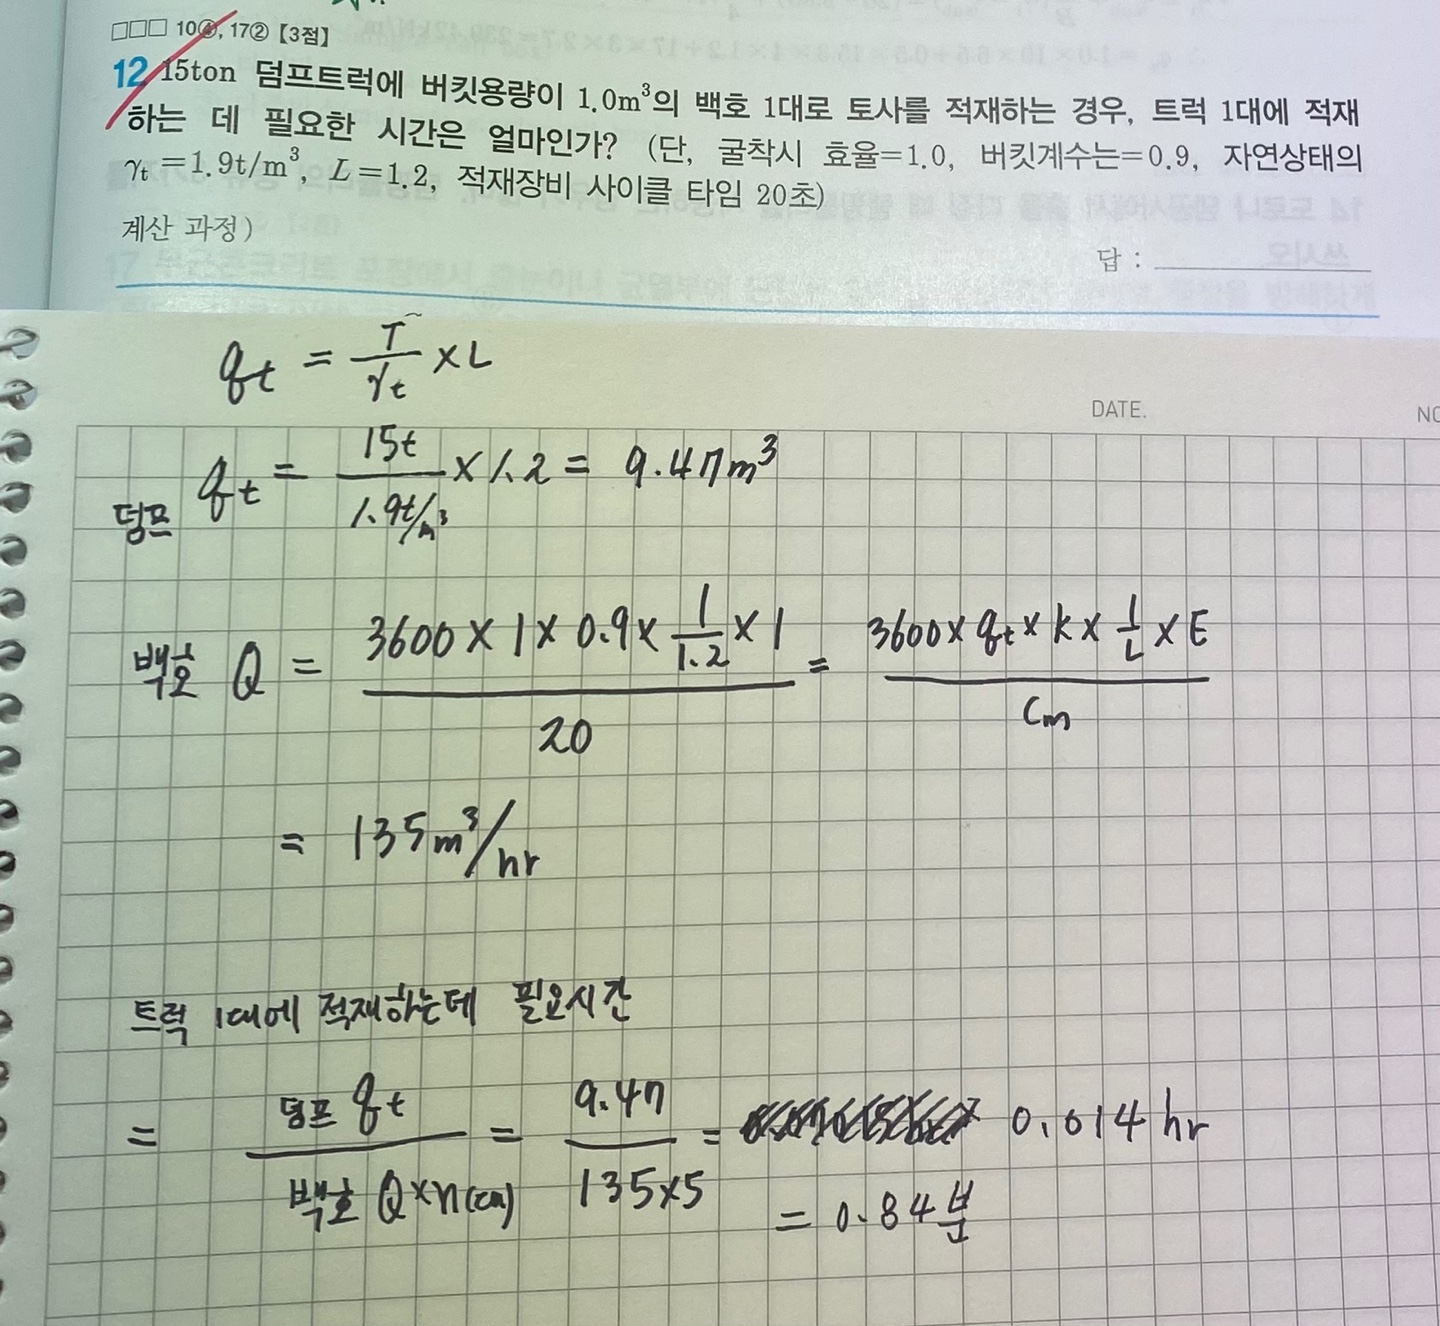 □□□ 10④, 17② 【3점】
12 15ton 덤프트럭에 버킷용량이 1.0m³의 백호 1대로 토사를 적재하는 경우, 트럭 1대에 적재
하는 데 필요한 시간은 얼마인가? (단, 굴착시 효율=1.0, 버킷계수는=0.9, 자연상태의
γt =1.9t/m³, L=1.2, 적재장비 사이클 타임 20초)
계산 과정)
답 :
qt = T/γt × L
DATE.
NO
덤프 qt = 15t/1.9t/m³ × 1.2 = 9.47m³
백호 Q = 3600 × 1 × 0.9 × 1/1.2 × 1 / 20 = 3600 × qt × k × 1/L × E / Cm
= 135m³/hr
트럭 1대에 적재하는데 필요시간
= 덤프 qt / 백호 Q×n(cm) = 9.47 / 135×5 = 0.014 hr
= 0.84분